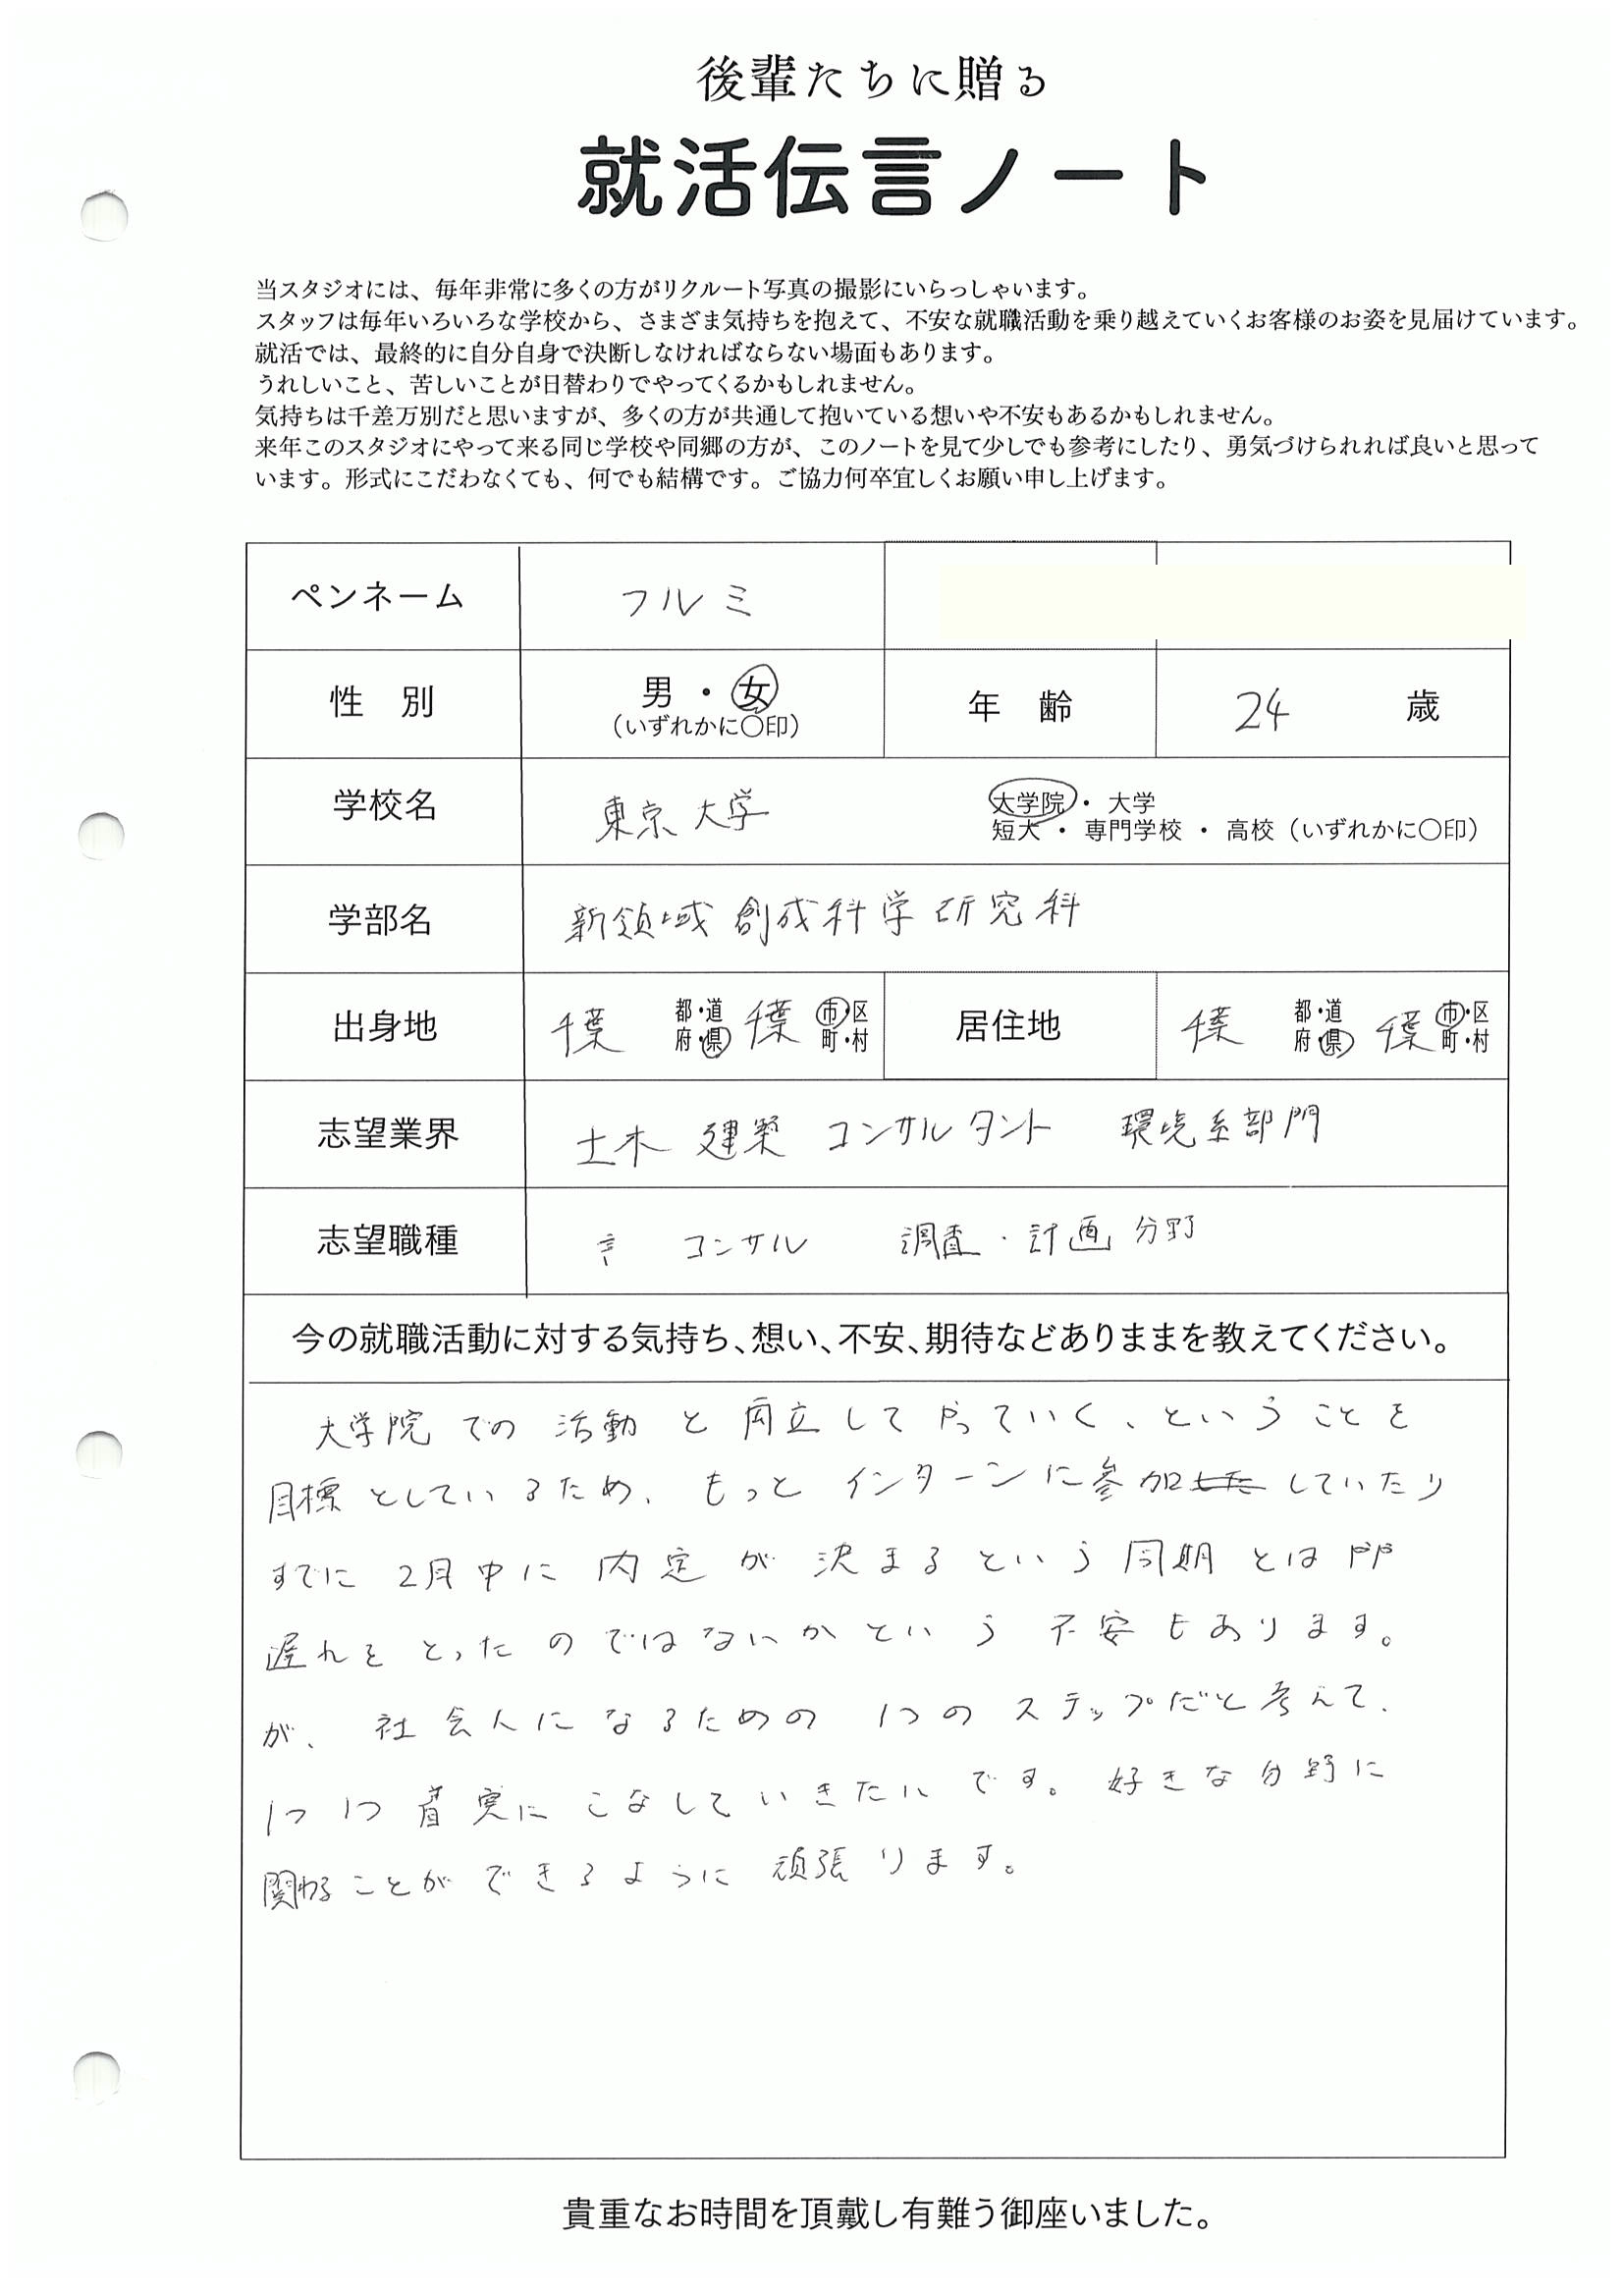 後輩たちに贈る
就活伝言ノート
当スタジオには、毎年非常に多くの方がリクルート写真の撮影にいらっしゃいます。
スタッフは毎年いろいろな学校から、さまざま気持ちを抱えて、不安な就職活動を乗り越えていくお客様のお姿を見届けています。
就活では、最終的に自分自身で決断しなければならない場面もあります。
うれしいこと、苦しいことが日替わりでやってくるかもしれません。
気持ちは千差万別だと思いますが、多くの方が共通して抱いている想いや不安もあるかもしれません。
来年このスタジオにやって来る同じ学校や同郷の方が、このノートを見て少しでも参考にしたり、勇気づけられれば良いと思って
います。形式にこだわなくても、何でも結構です。ご協力何卒宜しくお願い申し上げます。
ペンネーム フルミ
性 別 男 ・ 女 (いずれかに〇印) 年 齢 24 歳
学校名 東京大学 大学院 ・ 大学
短大 ・ 専門学校 ・ 高校 (いずれかに〇印)
学部名 新領域創成科学研究科
出身地 千葉 都・道府・県 千葉 市・区町・村 居住地 千葉 都・道府・県 千葉 市・区町・村
志望業界 土木 建築 コンサルタント 環境系部門
志望職種 コンサル 調査・計画 分野
今の就職活動に対する気持ち、想い、不安、期待などありままを教えてください。
大学院での活動と両立してやっていく、ということを
目標としているため、もっとインターンに参加していたり
すでに2月中に内定が決まるという同期とは
遅れをとったのではないかという不安もあります。
が、社会人になるための1つのステップだと考えて、
1つ1つ着実にこなしていきたいです。好きな分野に
関わることができるように頑張ります。
貴重なお時間を頂戴し有難う御座いました。